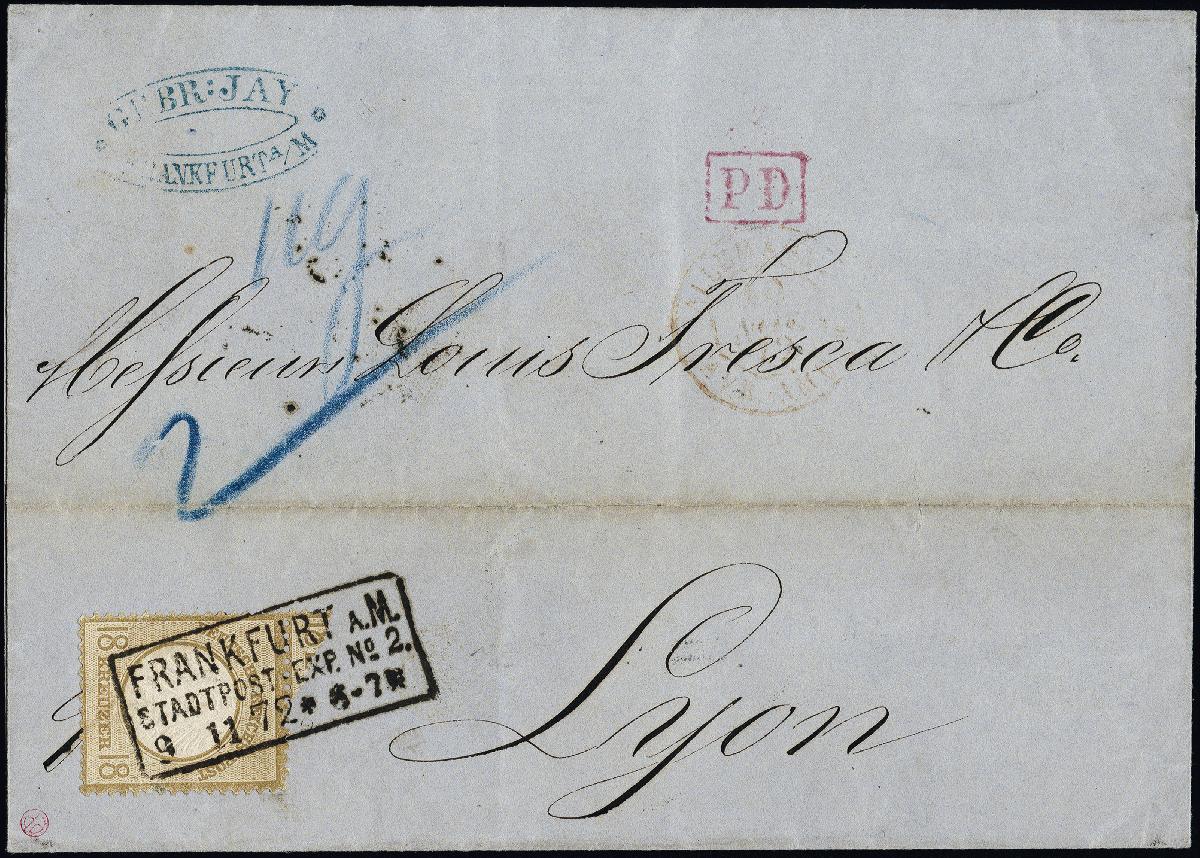 GEBR: JAY
FRANKFURT A/M
P D
119
Messieurs Louis Tresca & Co.
2
FRANKFURT A.M.
STADTPOST-EXP. No 2.
9 11 72 * 6-7 N
18 KREUZER 18
Lyon